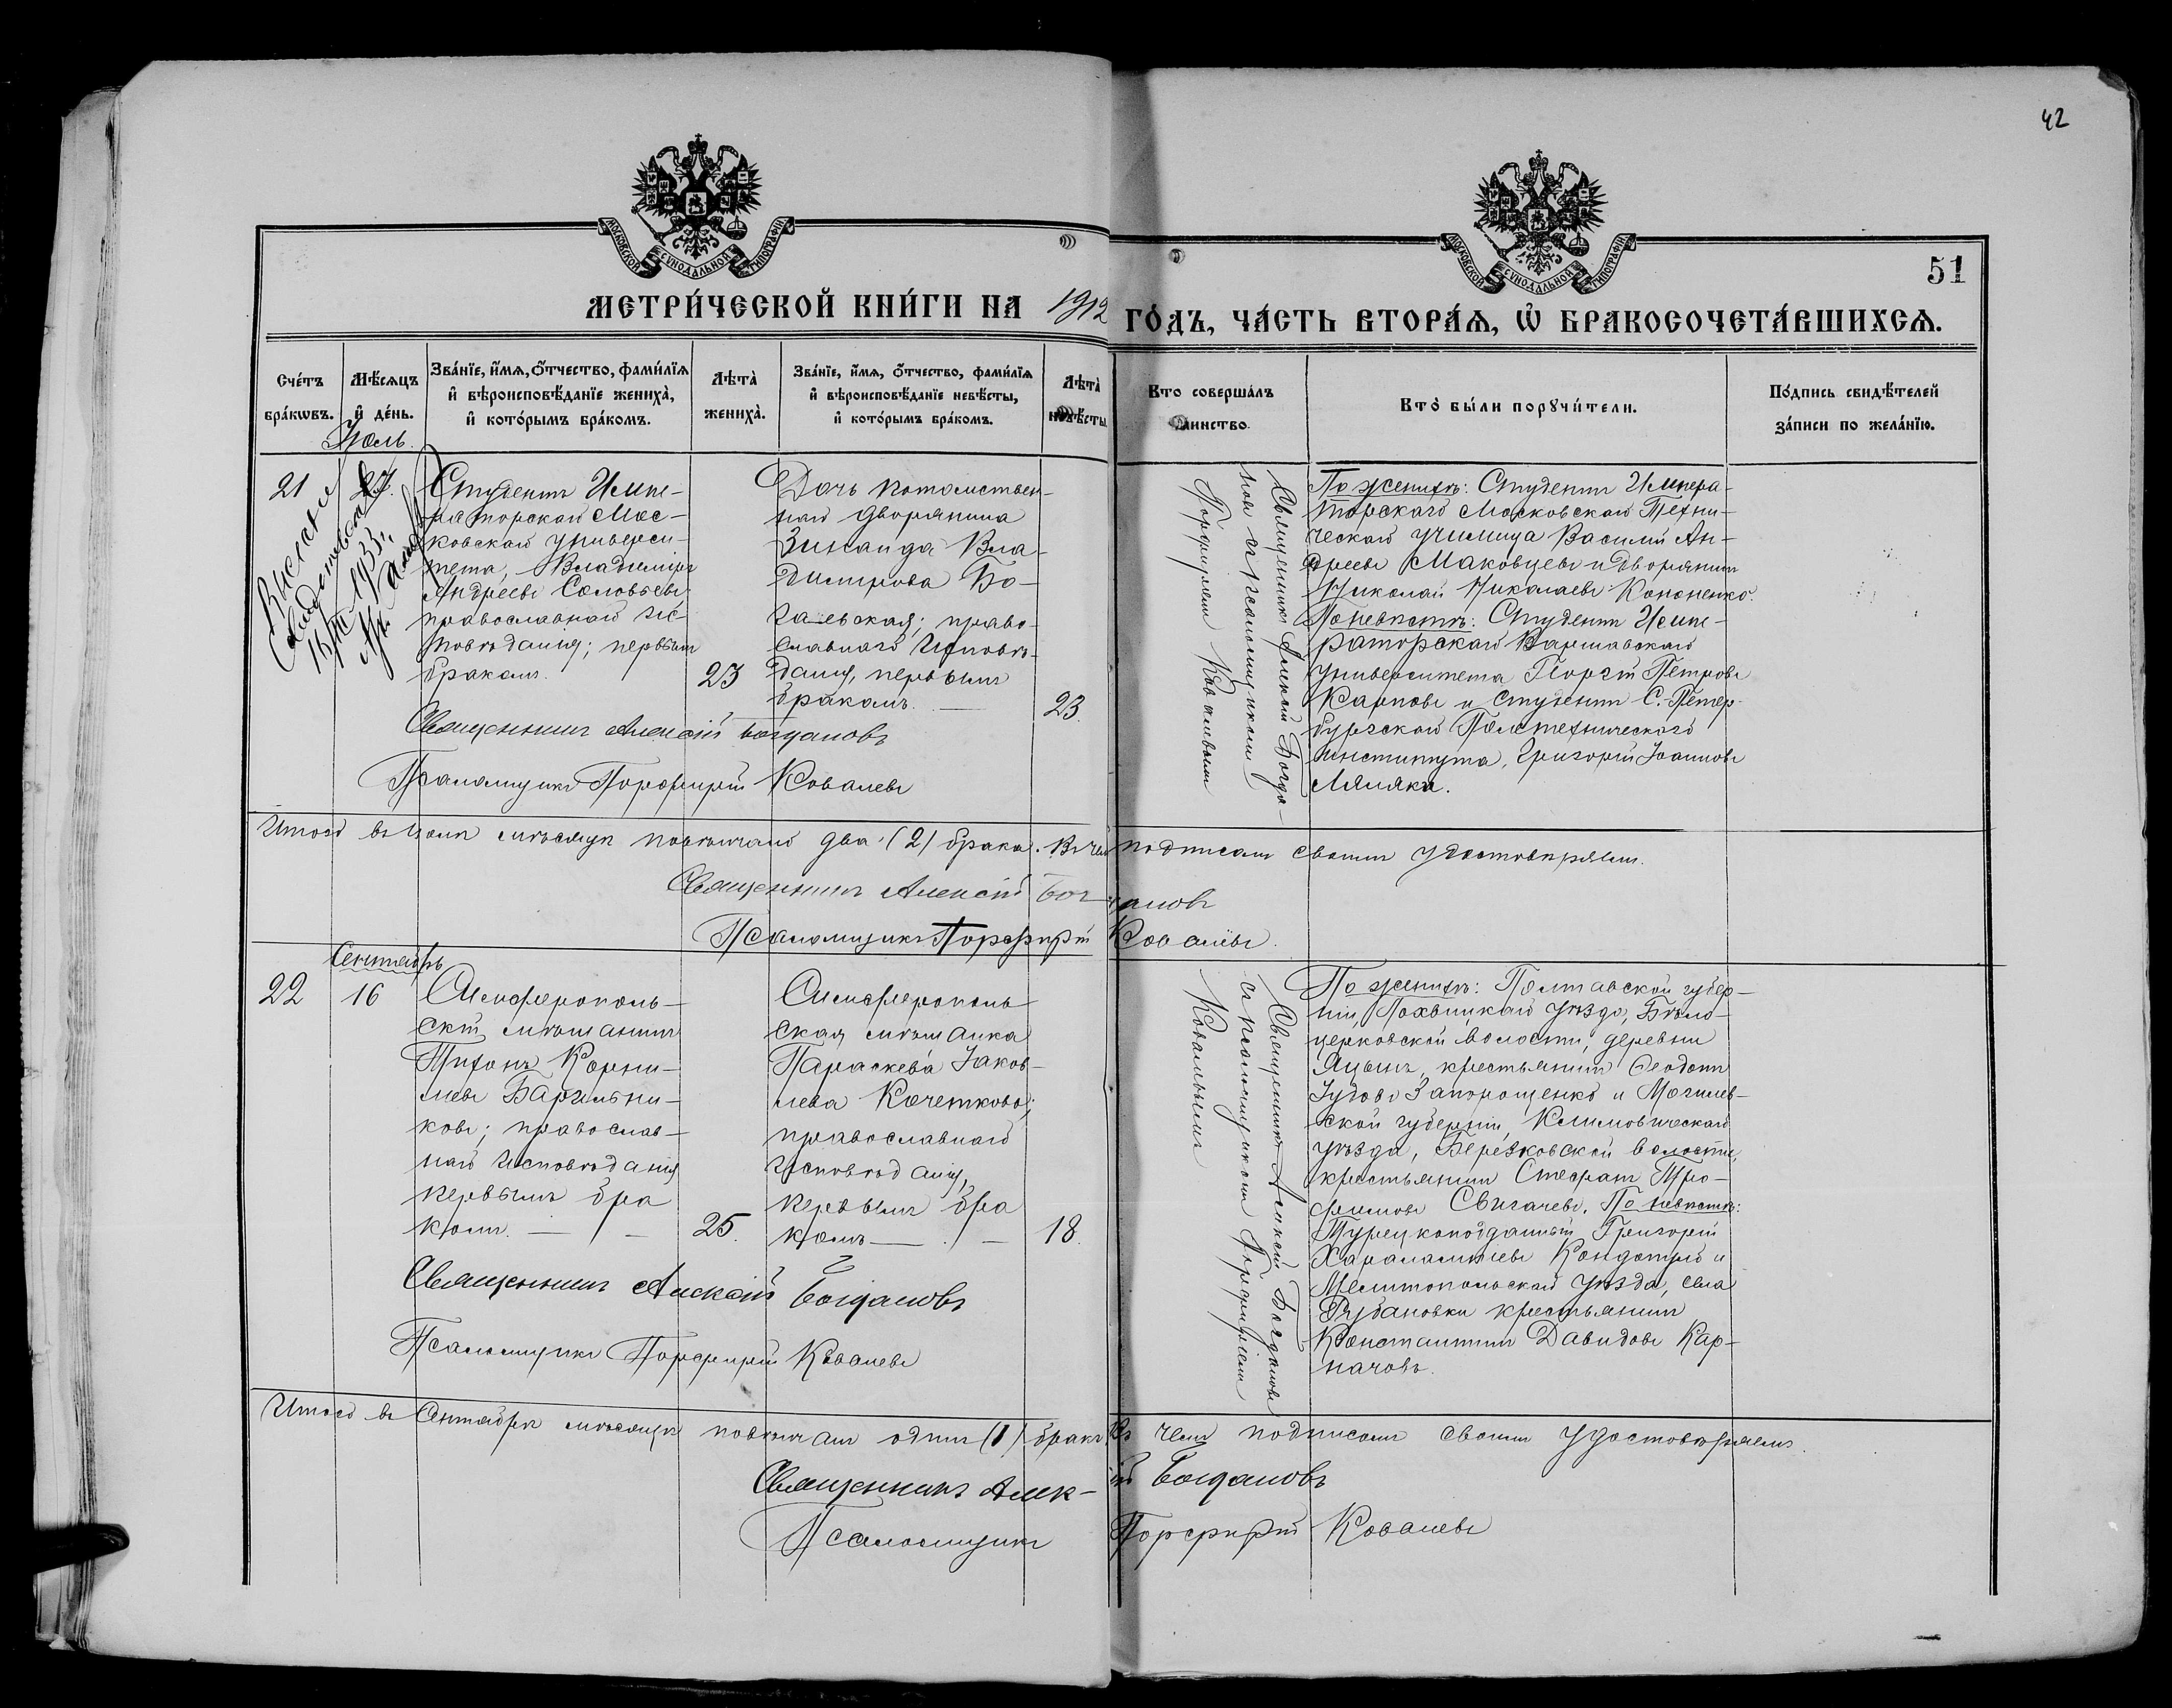 42
МОСКОВСКОЙ СѴНОДАЛЬНОЙ ТИПОГРАФІИ
МОСКОВСКОЙ СѴНОДАЛЬНОЙ ТИПОГРАФІИ
51
МЕТРИ́ЧЕСКОЙ КНИ́ГИ НА 1912 ГО́ДЪ, ЧА́СТЬ ВТОРА́Ѧ, Ѡ҆ БРАКОСОЧЕТА́ВШИХСѦ.
Сче́тъ
бра́кѡвъ.
Мѣ́сѧцъ
и҆ де́нь.
Зва́нїе, и҆́мѧ, ѻ҆́тчество, фами́лїѧ
и҆ вѣроисповѣ́данїе жениха̀,
и҆ кото́рымъ бра́комъ.
Лѣта̀
жениха̀.
Зва́нїе, и҆́мѧ, ѻ҆́тчество, фами́лїѧ
и҆ вѣроисповѣ́данїе невѣ́сты,
и҆ кото́рымъ бра́комъ.
Лѣта̀
невѣ́сты.
Кто соверша́лъ
таинство.
Кто̀ бы́ли порꙋчи́тели.
По́дпись свидѣ́телей
за́писи по жела́нїю.
Іюль.
21
27.
16/III 1933 г.
Студентъ Импе-
раторскаго Мос-
ковскаго Универси-
тета, Владиміръ
Андреевъ Соловьевъ
православнаго ис-
повѣданія; первымъ
бракомъ.
23
Дочь потомствен-
наго дворянина
Зинаида Вла-
димірова Бо-
гаевская; право-
славнаго исповѣ-
данія, первымъ
бракомъ.
23.
Священникъ Алексій Богда-
новъ съ псаломщикомъ
Порфиріемъ Ковалевымъ
По женихѣ: Студентъ Импера-
торскаго Московскаго Техни-
ческаго училища Василій Ан-
дреевъ Маковцевъ и дворянинъ
Николай Николаевъ Кононенко.
По невѣстѣ: Студентъ Импе-
раторскаго Варшавскаго
Университета Георгій Петровъ
Карповъ и студентъ С.-Петер-
бургскаго Политехническаго
института, Григорій Іоанновъ
Маляка.
Священникъ Алексій Богдановъ
Псаломщикъ Порфирій Ковалевъ
Итого въ Іюлѣ мѣсяцѣ повѣнчано два (2) брака. Въ чемъ подписомъ своимъ удостовѣряемъ.
Священникъ Алексій Богдановъ
Псаломщикъ Порфирій Ковалевъ.
Сентябрь
22
16
Симферополь-
скій мѣщанинъ
Тихонъ Корни-
ліевъ Барильни-
ковъ; православ-
наго исповѣданія
первымъ бра
комъ.
25.
Симферополь-
ская мѣщанка
Параскева Іаков-
лева Кочеткова;
православнаго
исповѣданія,
первымъ бра
комъ
18.
Священникъ Алексій Богдановъ
съ псаломщикомъ Порфиріемъ
Ковалевымъ
По женихѣ: Полтавской губер-
ніи, Лохвицкаго уѣзда, Бѣло-
церковской волости, деревни
Яцынъ, крестьянинъ Ѳеодотъ
Іудовъ Запорощенко и Могилев-
ской губерніи, Климовическаго
уѣзда, Березковской волости,
крестьянинъ Стефанъ Тро-
фимовъ Свигачевъ. По невѣстѣ:
Турецкоподданный Григорій
Харалампіевъ Кондотуло и
Мелитопольскаго уѣзда, села
Рубановки крестьянинъ
Константинъ Давидовъ Кар-
пачовъ.
Священникъ Алексій Богдановъ
Псаломщикъ Порфирій Ковалевъ
Итого въ Сентябрѣ мѣсяцѣ повѣнчанъ одинъ (1) бракъ. Въ чемъ подписомъ своимъ удостовѣряемъ.
Священникъ Алексій Богдановъ
Псаломщикъ Порфирій Ковалевъ